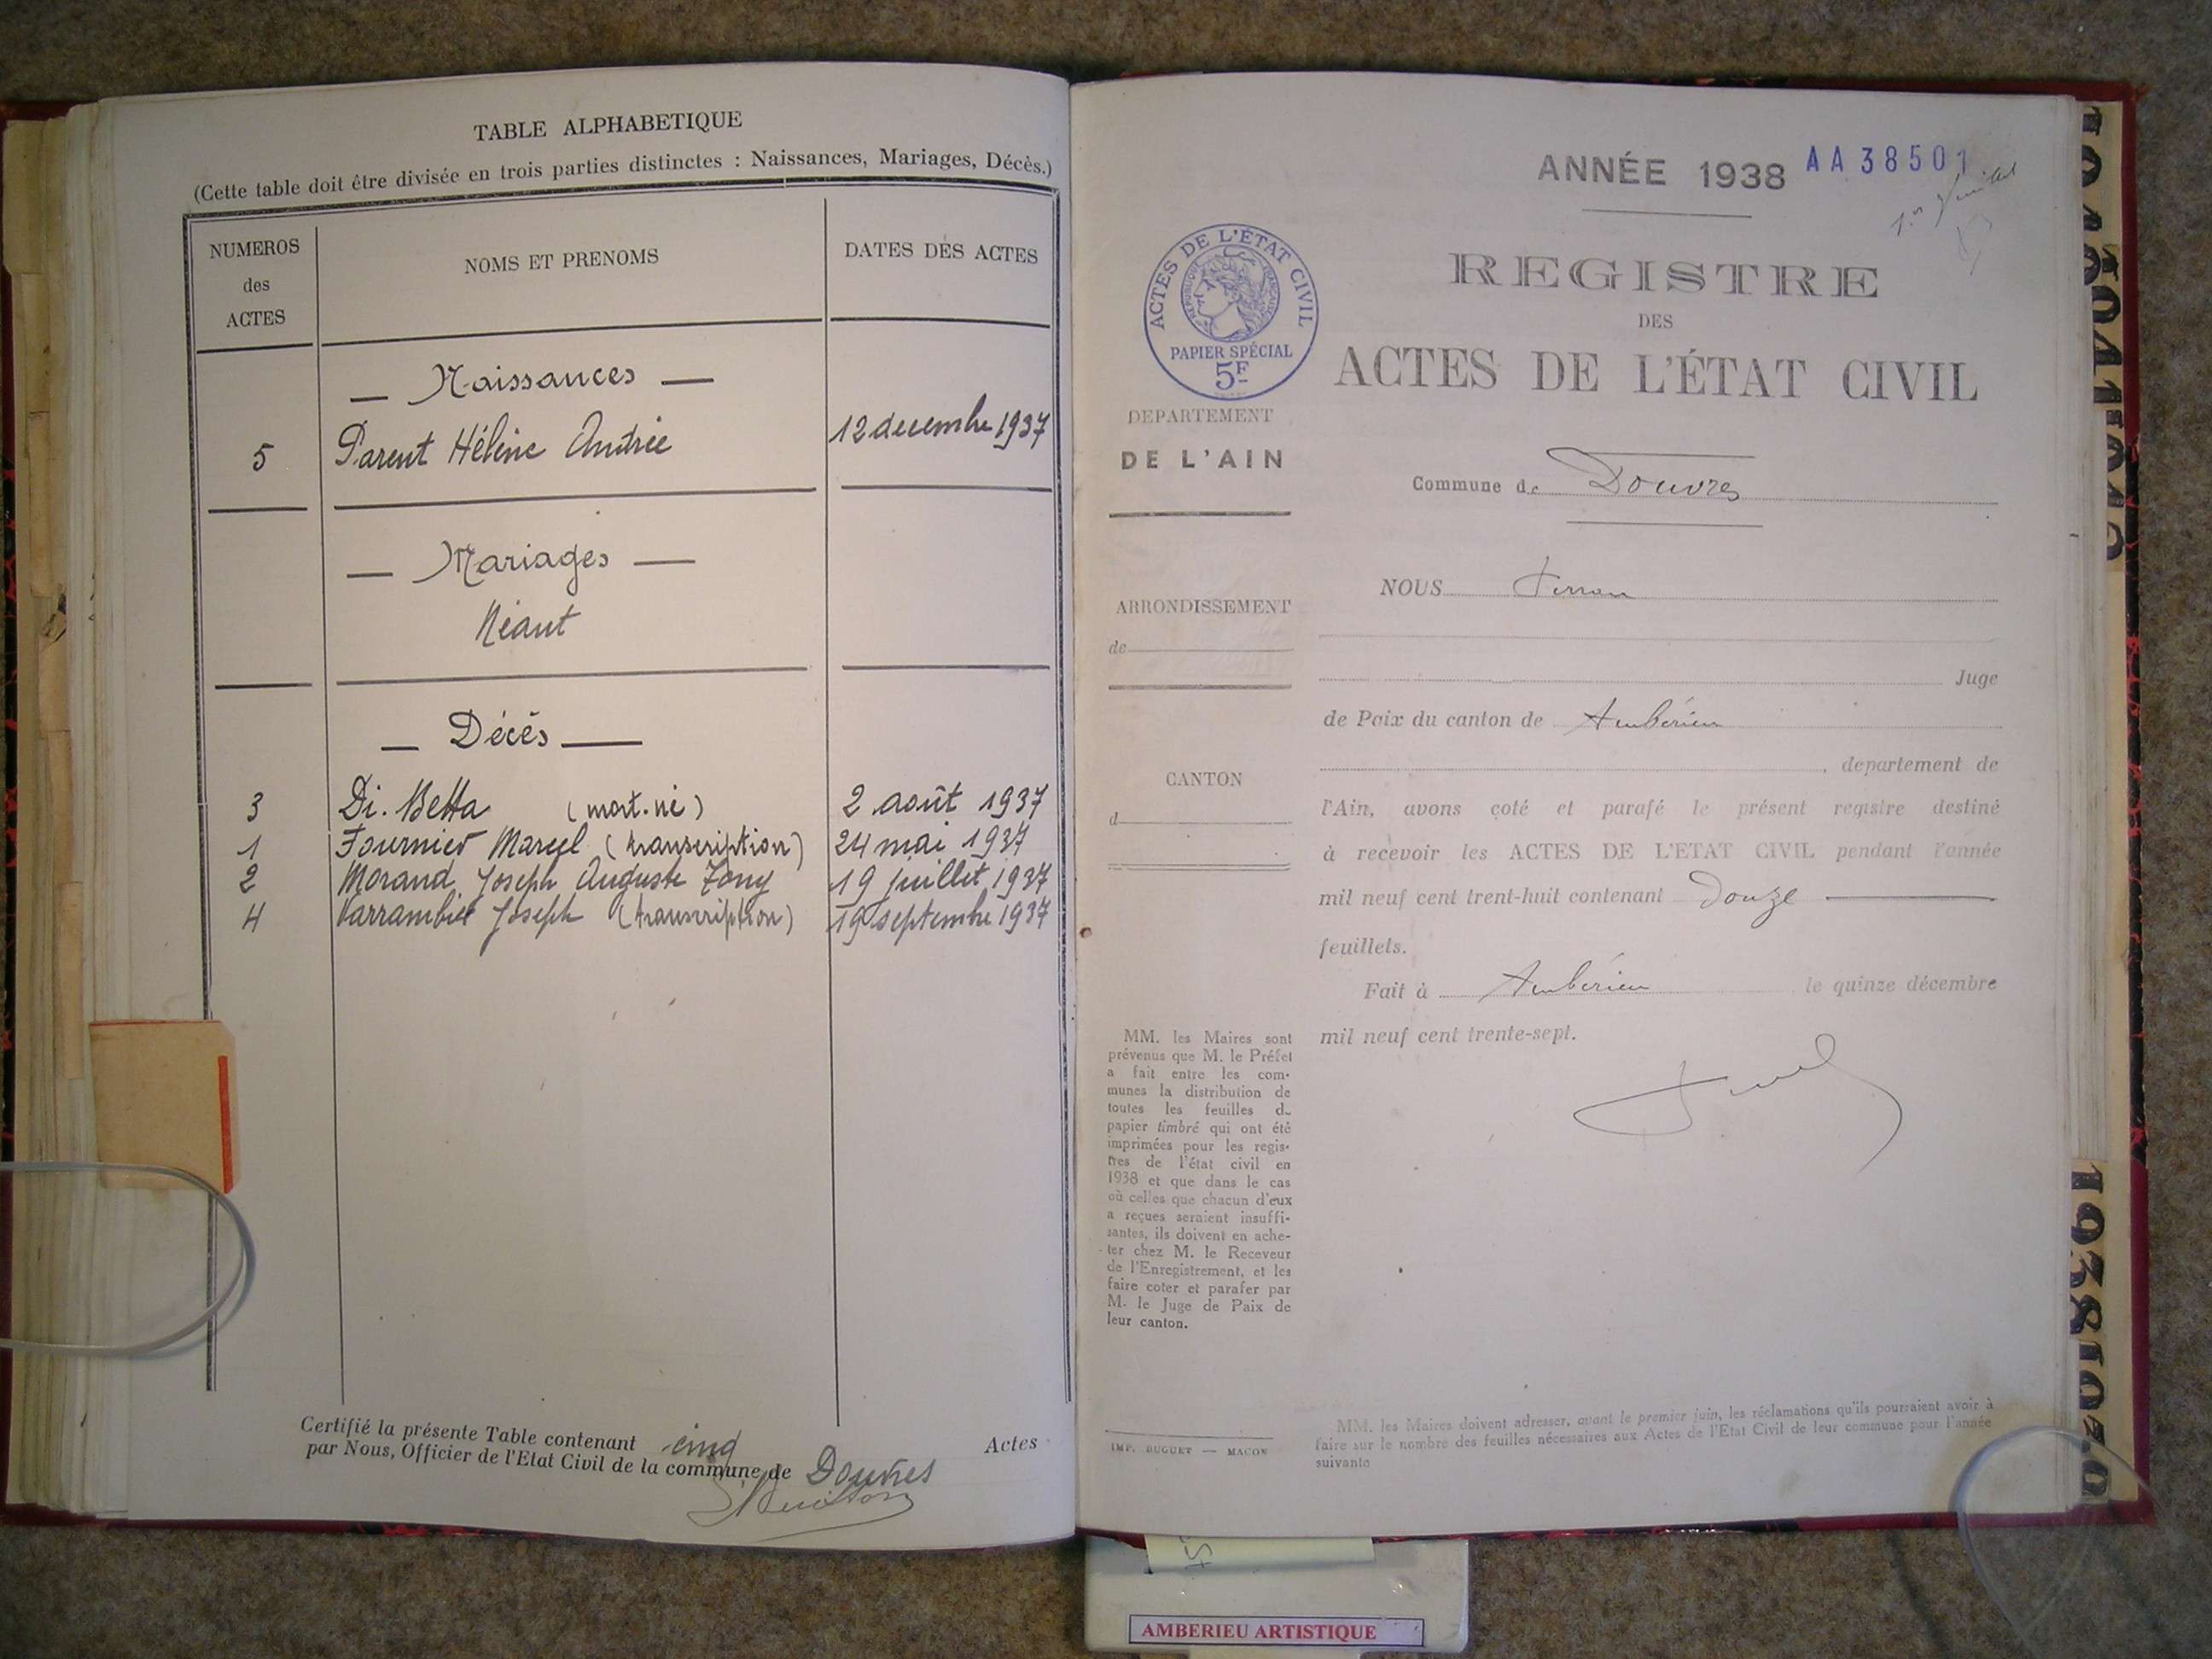 TABLE ALPHABETIQUE
(Cette table doit être divisée en trois parties distinctes : Naissances, Mariages, Décès.)
NUMEROS des ACTES
NOMS ET PRENOMS
DATES DES ACTES
— Naissances —
5 Parent Hélène Andrée 12 decembre 1937
— Mariages —
Néant
— Décès —
3 Di. Betta (mort.né) 2 août 1937
1 Fournier Marcel (transcription) 24 mai 1937
2 Morand Joseph Auguste Tony 19 juillet 1937
4 Varrambier Joseph (transcription) 19 septembre 1937
Certifié la présente Table contenant cinq Actes
par Nous, Officier de l'Etat Civil de la commune de Douvres
ANNÉE 1938 AA 38501
1er feuillet
REGISTRE
DES
ACTES DE L'ÉTAT CIVIL
ACTES DE L'ÉTAT CIVIL
REPUBLIQUE FRANÇAISE
PAPIER SPÉCIAL
5F
DEPARTEMENT
DE L'AIN
ARRONDISSEMENT
de
CANTON
d
Commune de Douvres
NOUS
Juge
de Paix du canton de Ambérieu
, departement de
l'Ain, avons coté et parafé le présent registre destiné
à recevoir les ACTES DE L'ETAT CIVIL pendant l'année
mil neuf cent trent-huit contenant Douze
feuillets.
Fait à Ambérieu le quinze décembre
mil neuf cent trente-sept.
MM. les Maires sont
prévenus que M. le Préfet
a fait entre les com-
munes la distribution de
toutes les feuilles de
papier timbré qui ont été
imprimées pour les regis-
tres de l'état civil en
1938 et que dans le cas
où celles que chacun d'eux
a reçues seraient insuffi-
santes, ils doivent en ache-
ter chez M. le Receveur
de l'Enregistrement, et les
faire coter et parafer par
M. le Juge de Paix de
leur canton.
IMP. BUGUET — MACON
MM. les Maires doivent adresser, avant le premier juin, les réclamations qu'ils pourraient avoir à
faire sur le nombre des feuilles nécessaires aux Actes de l'Etat Civil de leur commune pour l'année
suivante
1938
AMBERIEU ARTISTIQUE